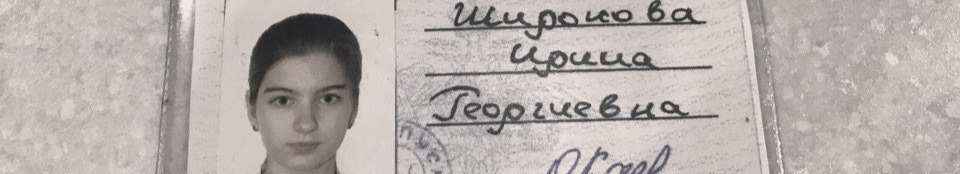 Широкова
Ирина
Георгиевна